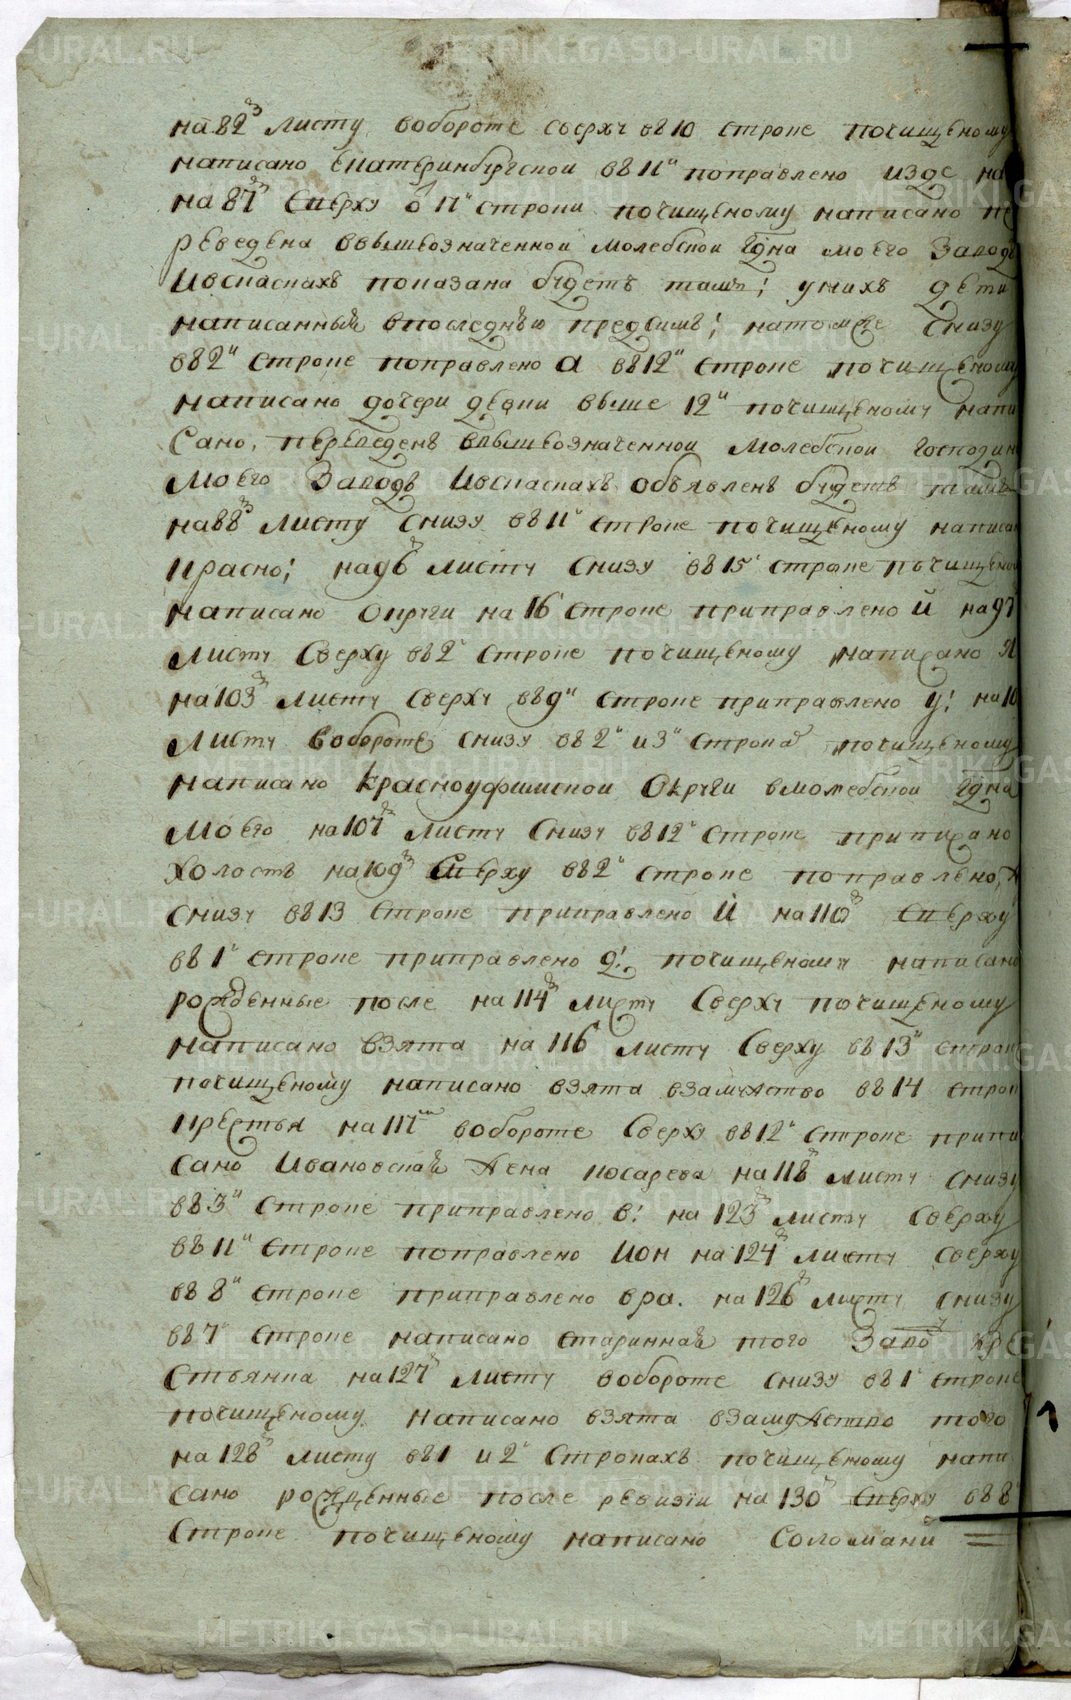 на 82м листу вобороте сверху въ 10 строке почищеному
написано екатеринбургской въ 11й поправлено изде на
на 87м сверху в 11й строки почищеному написано пе
реведена ввышеозначенной молебской гдна моего Заводъ
Ивспискахъ показана будетъ тамъ; унихъ дети
написанныя впоследнюю пред симъ; натомже снизу
въ 2й строке поправлено а въ 12й строке почищеному
написано дочери девки выше 12й почищеному напи
сано, переведенъ ввышеозначенной Молебской господин
Моего Заводъ Ивспискахъ объявленъ будетъ тамъ
на 88м листу снизу въ 11й строке почищеному написан
красно; на 96м листу снизу въ 15й строке почищеном
написано округи на 16 строке приправлено й на 97
листу Сверху въ 2й строке почищеному написано Я
на 103м листу сверху въ 9й строке приправлено у; на 10
листу вобороте снизу въ 2й и 3й строка почищеному
написано красноуфимской Округи вмолебской Гдна
Моего на 107м листу снизу въ 12й строке приписано
холостъ на 109м сверху въ 2й строке поправлено,
снизу въ 13 строке приправлено й на 110м сверху
въ 1й строке приправлено д; почищеному написано
рожденные после на 114м листу Сверху почищеному
написано взята на 116 листу Сверху въ 13й строк
почищеному написано взята взамужство въ 14 строк
крестья на 117м вобороте Сверху въ 12й строке припи
сано Ивановская Жена косарева на 118м листу снизу
въ 3й строке приправлено в; на 123м листу сверху
въ 11й строке поправлено кон на 124м листу сверху
въ 8й строке приправлено вра. на 126м листу снизу
въ 7й строке написано старинная того Заво кре
стьянка на 127м листу вобороте снизу въ 1й строке
почищеному написано взята взамужство того
на 128м листу въ 1 и 2й строкахъ почищеному напи
сано рожденные после ревизiи на 130м сверху въ 8
строке почищеному написано Соломани
METRIKI.GASO-URAL.RU